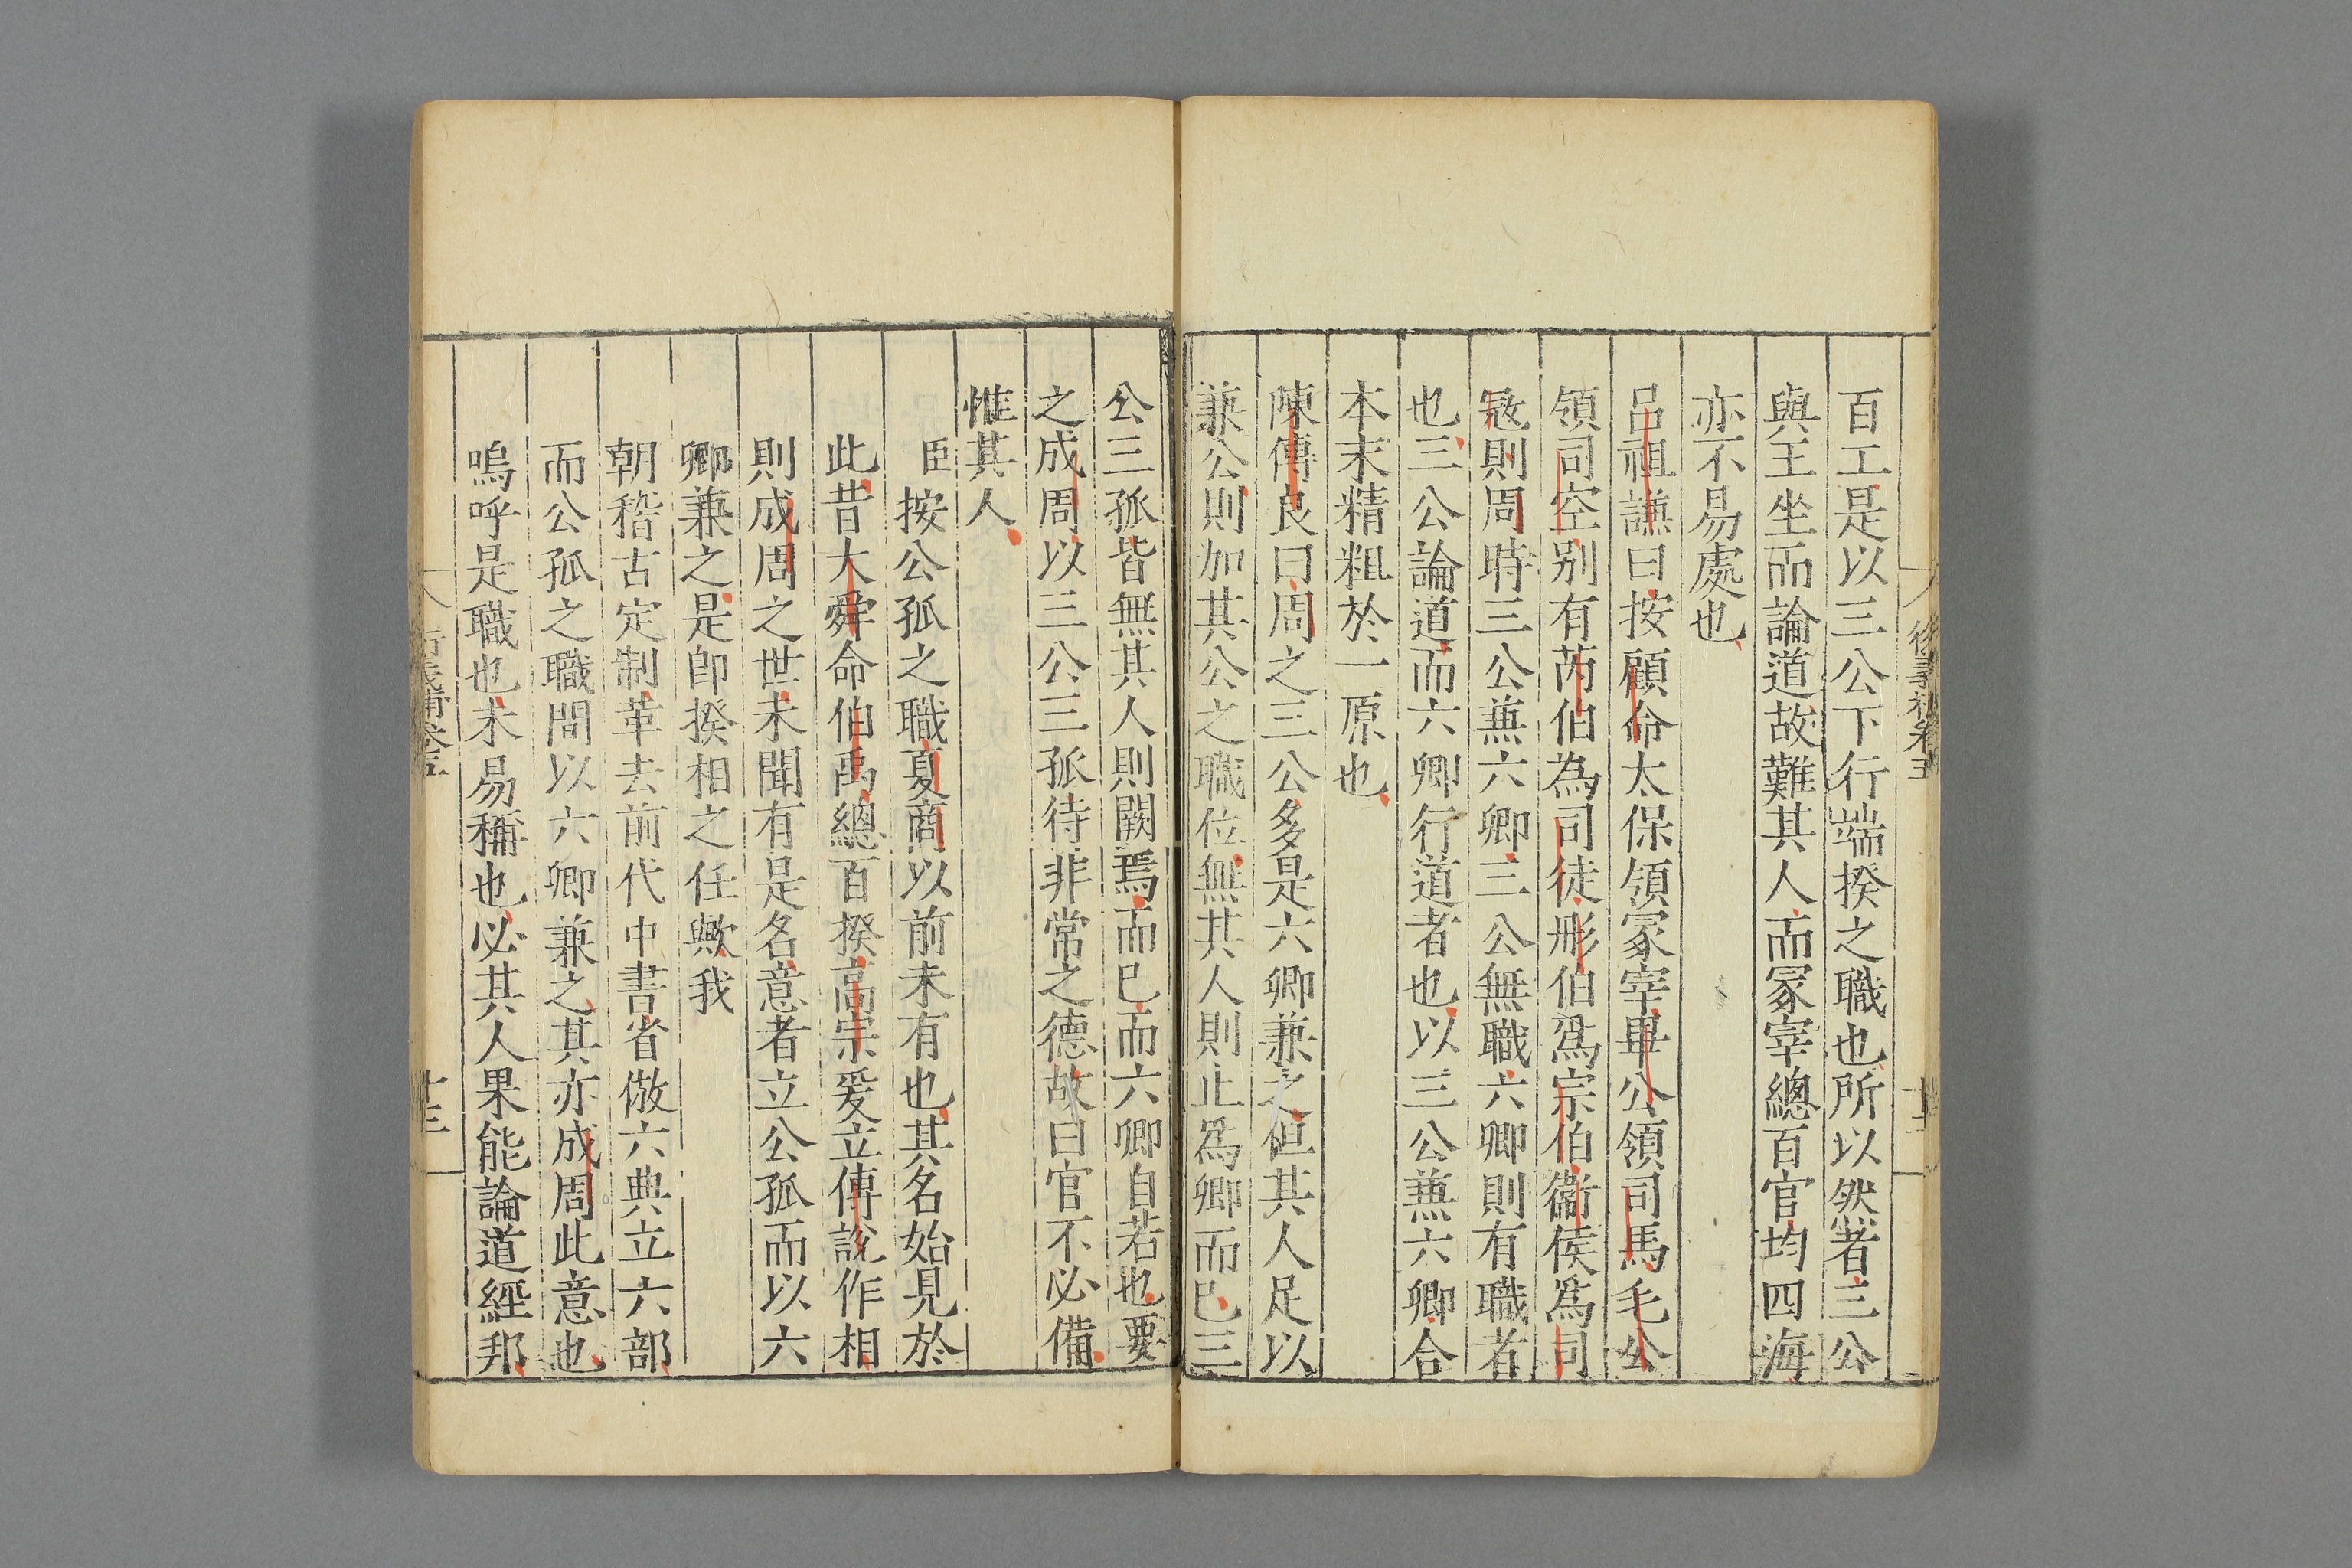 百工是以三公下行端揆之職也所以然者三公
與王坐而論道故難其人而冢宰總百官均四海
亦不易處也
呂祖謙曰按顧命太保領冢宰畢公領司馬毛公
領司空别有芮伯為司徒彤伯爲宗伯衞侯爲司
冦則周時三公兼六卿三公無職六卿則有職者
也三公論道而六卿行道者也以三公兼六卿合
本末精粗於一原也
陳傅良曰周之三公多是六卿兼之但其人足以
兼公則加其公之職位無其人則止爲卿而已三
公三孤皆無其人則闕焉而已而六卿自若也要
之成周以三公三孤待非常之德故曰官不必備
惟其人
臣按公孤之職夏商以前未有也其名始見於
此昔大舜命伯禹總百揆高宗爰立傅說作相
則成周之世未聞有是名意者立公孤而以六
卿兼之是卽揆相之任歟我
朝稽古定制革去前代中書省倣六典立六部
而公孤之職間以六卿兼之其亦成周此意也
嗚呼是職也未易稱也必其人果能論道經邦